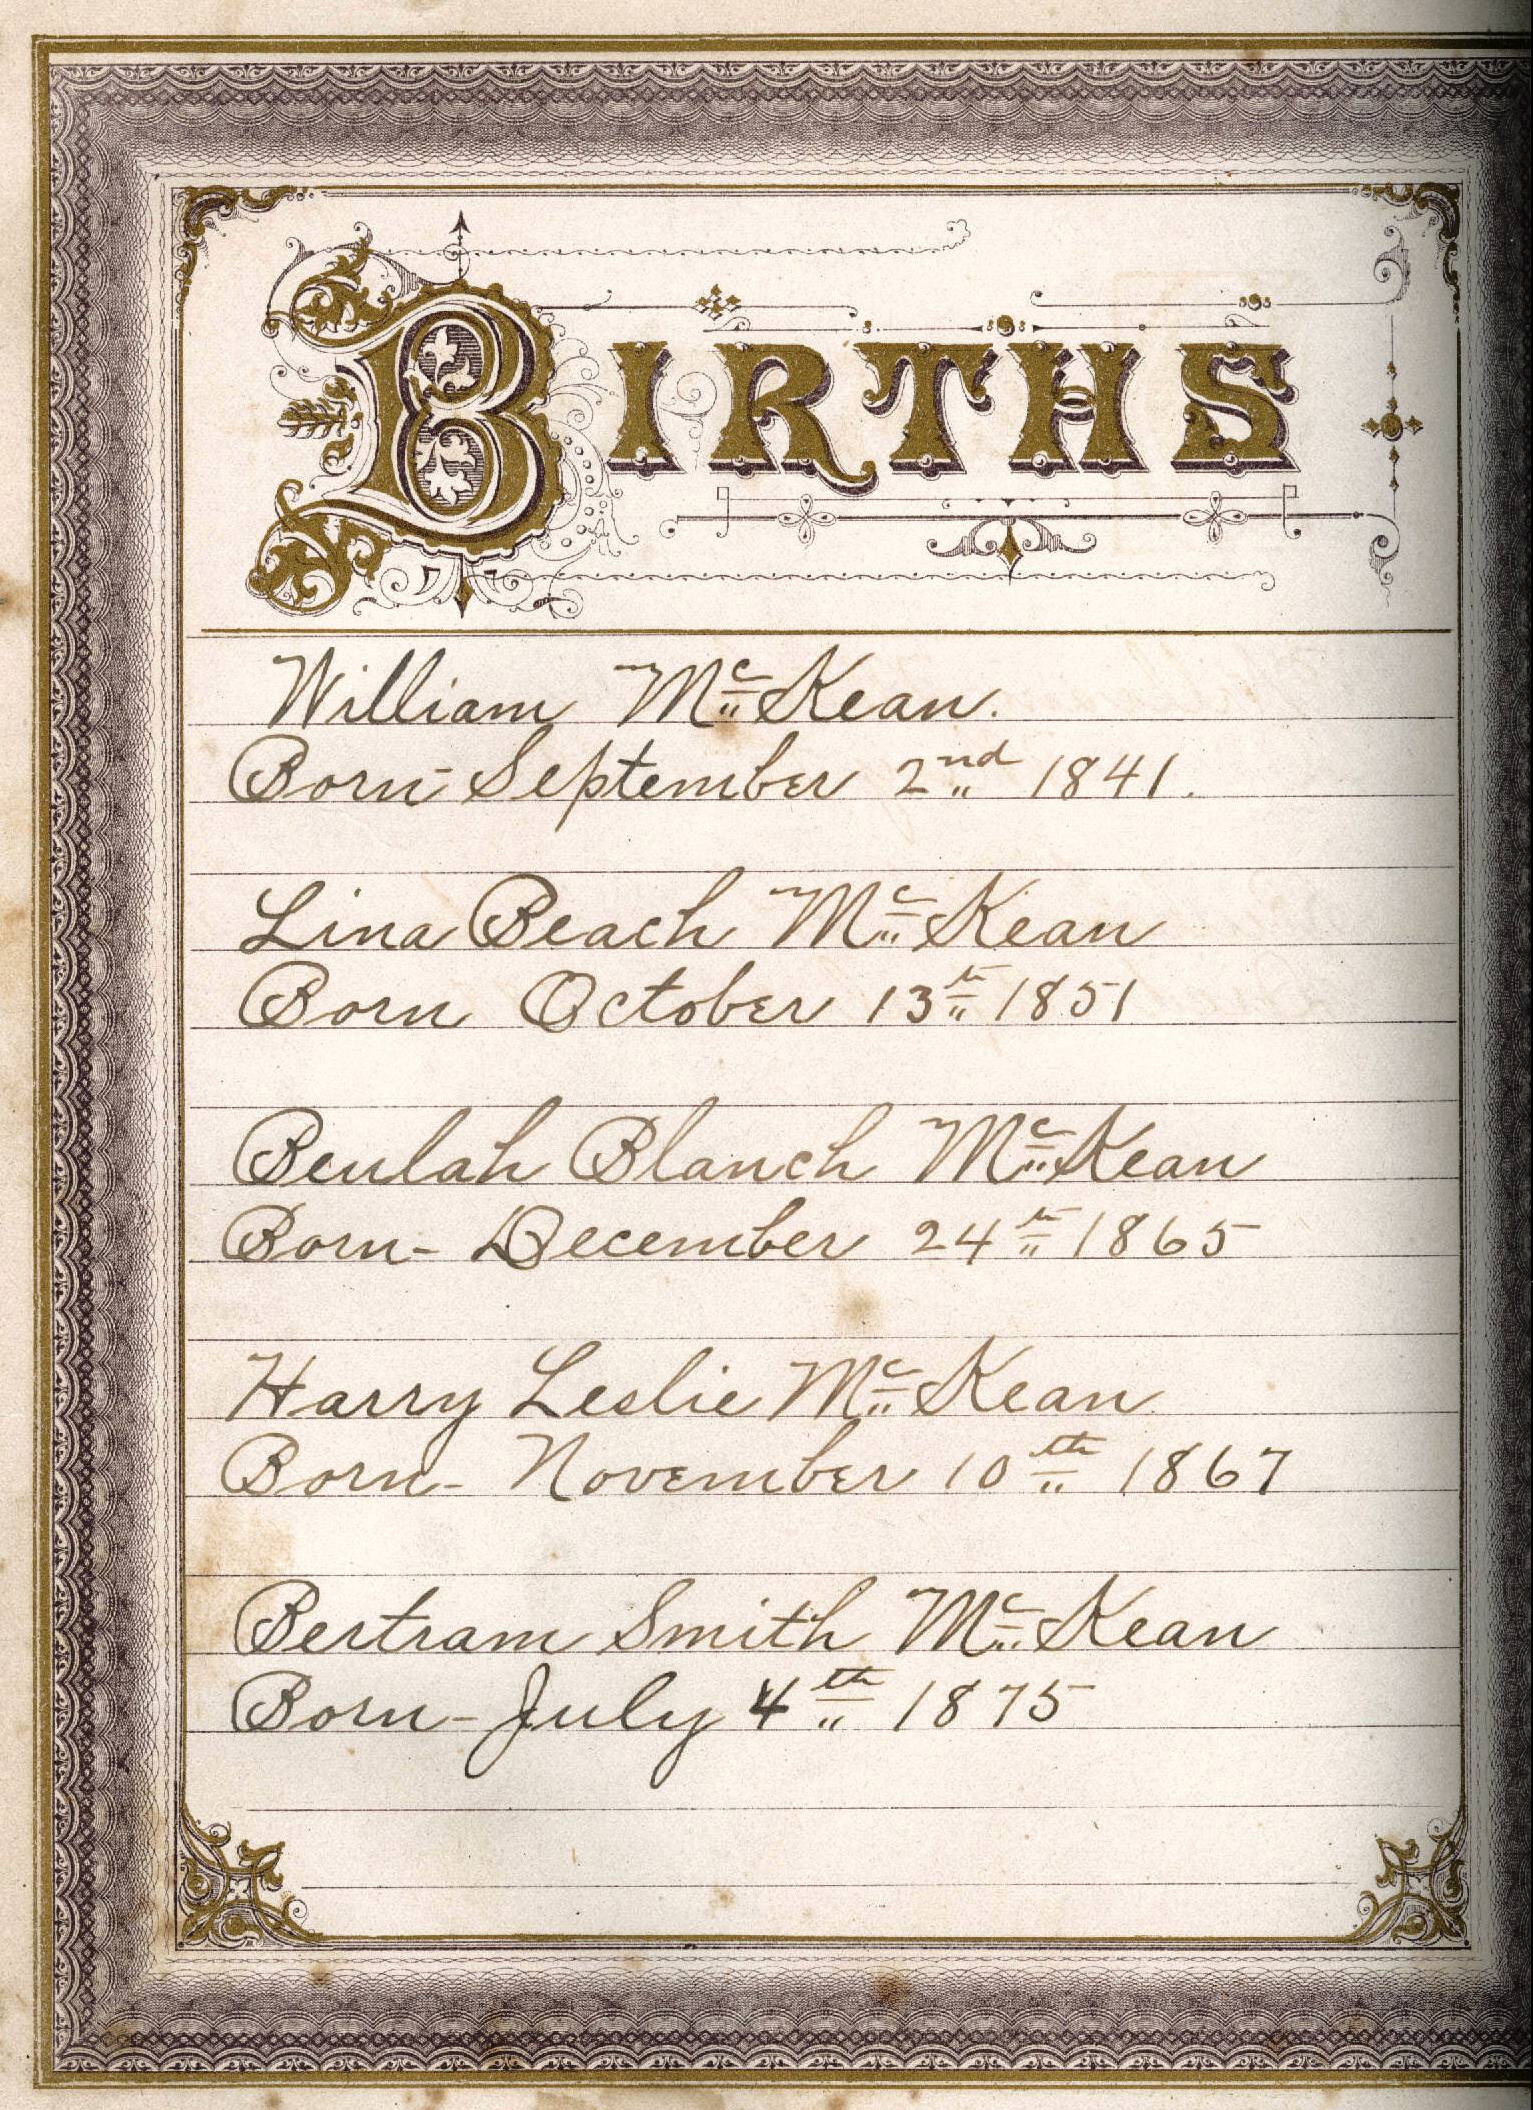 BIRTHS
William McKean.
Born- September 2nd 1841.
Lina Beach McKean
Born October 13th 1851
Beulah Blanch McKean
Born- December 24th 1865
Harry Leslie McKean
Born- November 10th 1867
Bertram Smith McKean
Born- July 4th 1875